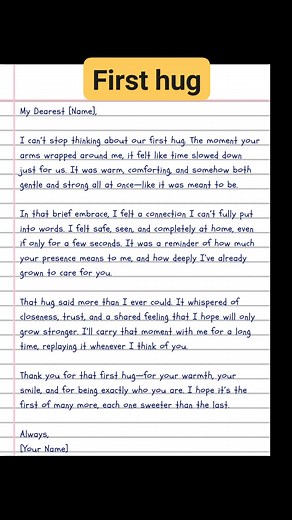 First hug
My Dearest [Name],
I can't stop thinking about our first hug. The moment your
arms wrapped around me, it felt like time slowed down
just for us. It was warm, comforting, and somehow both
gentle and strong all at once—like it was meant to be.
In that brief embrace, I felt a connection I can't fully put
into words. I felt safe, seen, and completely at home, even
if only for a few seconds. It was a reminder of how much
your presence means to me, and how deeply I've already
grown to care for you.
That hug said more than I ever could. It whispered of
closeness, trust, and a shared feeling that I hope will only
grow stronger. I'll carry that moment with me for a long
time, replaying it whenever I think of you.
Thank you for that first hug—for your warmth, your
smile, and for being exactly who you are. I hope it's the
first of many more, each one sweeter than the last.
Always,
[Your Name]